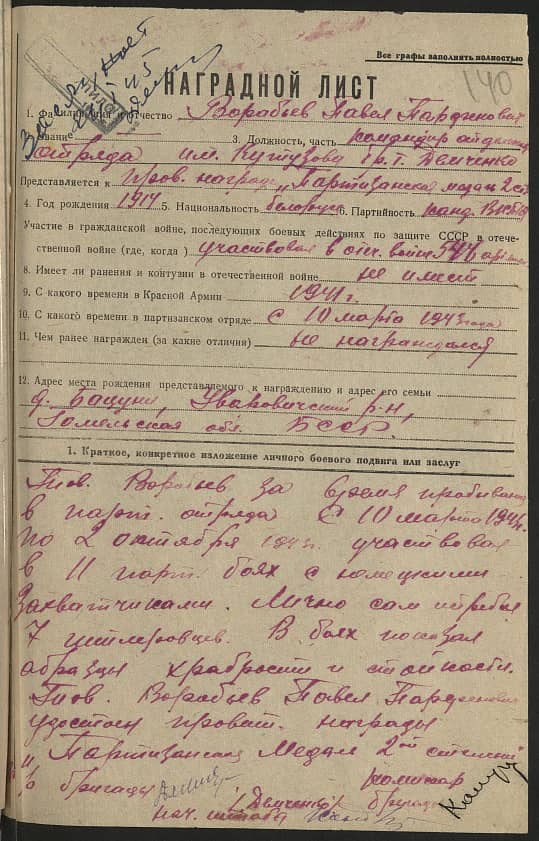 Все графы заполнять полностью
140
НАГРАДНОЙ ЛИСТ
1. Фамилия, имя и отчество Воробьев Павел Парфенович
2. Звание 3. Должность, часть командир отделения
отряда им. Кутузова бр. т. Демченко
Представляется к прав. награде „Партизанская медаль 2 ст
4. Год рождения 1914 5. Национальность белорус 6. Партийность канд. ВКП(б)
Участие в гражданской войне, последующих боевых действиях по защите СССР в отече-
ственной войне (где, когда) участвовал в отч. войне
8. Имеет ли ранения и контузии в отечественной войне не имеет
9. С какого времени в Красной Армии 1941 г.
10. С какого времени в партизанском отряде с 10 марта 1943 года
11. Чем ранее награжден (за какие отличия) не награждался
12. Адрес места рождения представляемого к награждению и адрес его семьи
д. Бацуни, Уваровичский р-н,
Гомельская обл. БССР
1. Краткое, конкретное изложение личного боевого подвига или заслуг
Тов. Воробьев за время пребывания
в парт. отряда с 10 марта 1943 г.
по 2 октября 1943 г. участвовал
в 11 парт. боях с немецкими
захватчиками. Лично сам истребил
7 гитлеровцев. В боях показал
образцы храбрости и стойкости.
Тов. Воробьев Павел Парфенович
удостоен правит. награды
„Партизанская Медаль 2ой степени
бригады комиссар
/Демченко/ бригады
нач. штаба